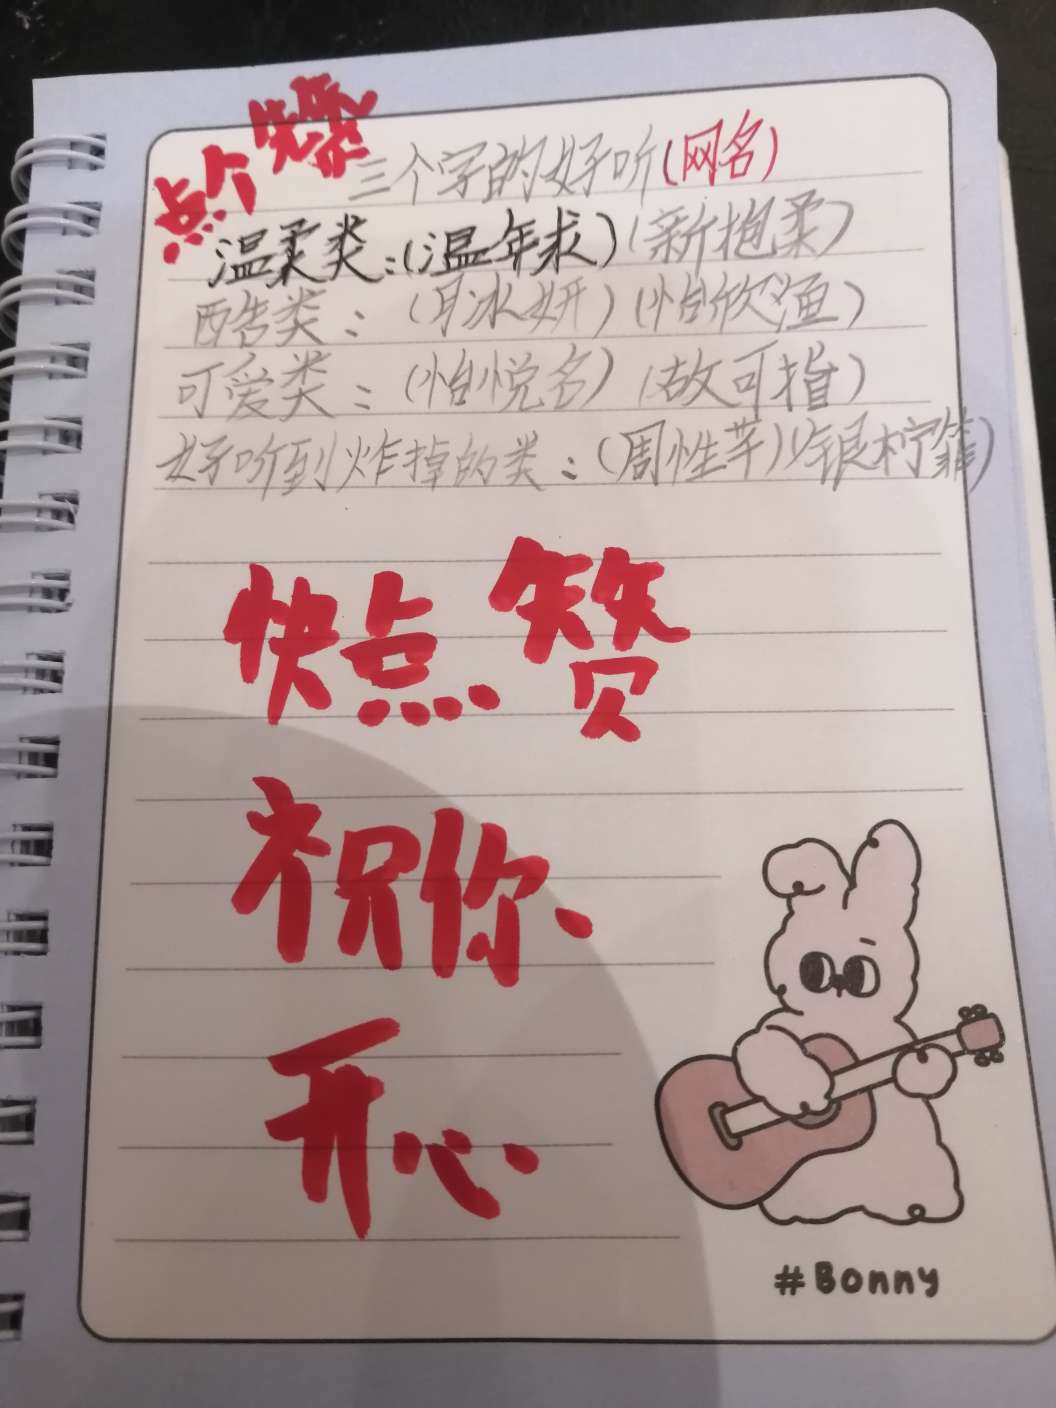 点个赞
三个字的好听(网名)
温柔类:(温年求)(新抱柔)
酷类:(月冰妍)(怡欣渔)
可爱类:(怡悦名)(故可指)
好听到炸掉的类:(周性芊)(银柠)
快点赞
祝你
开心
#Bonny